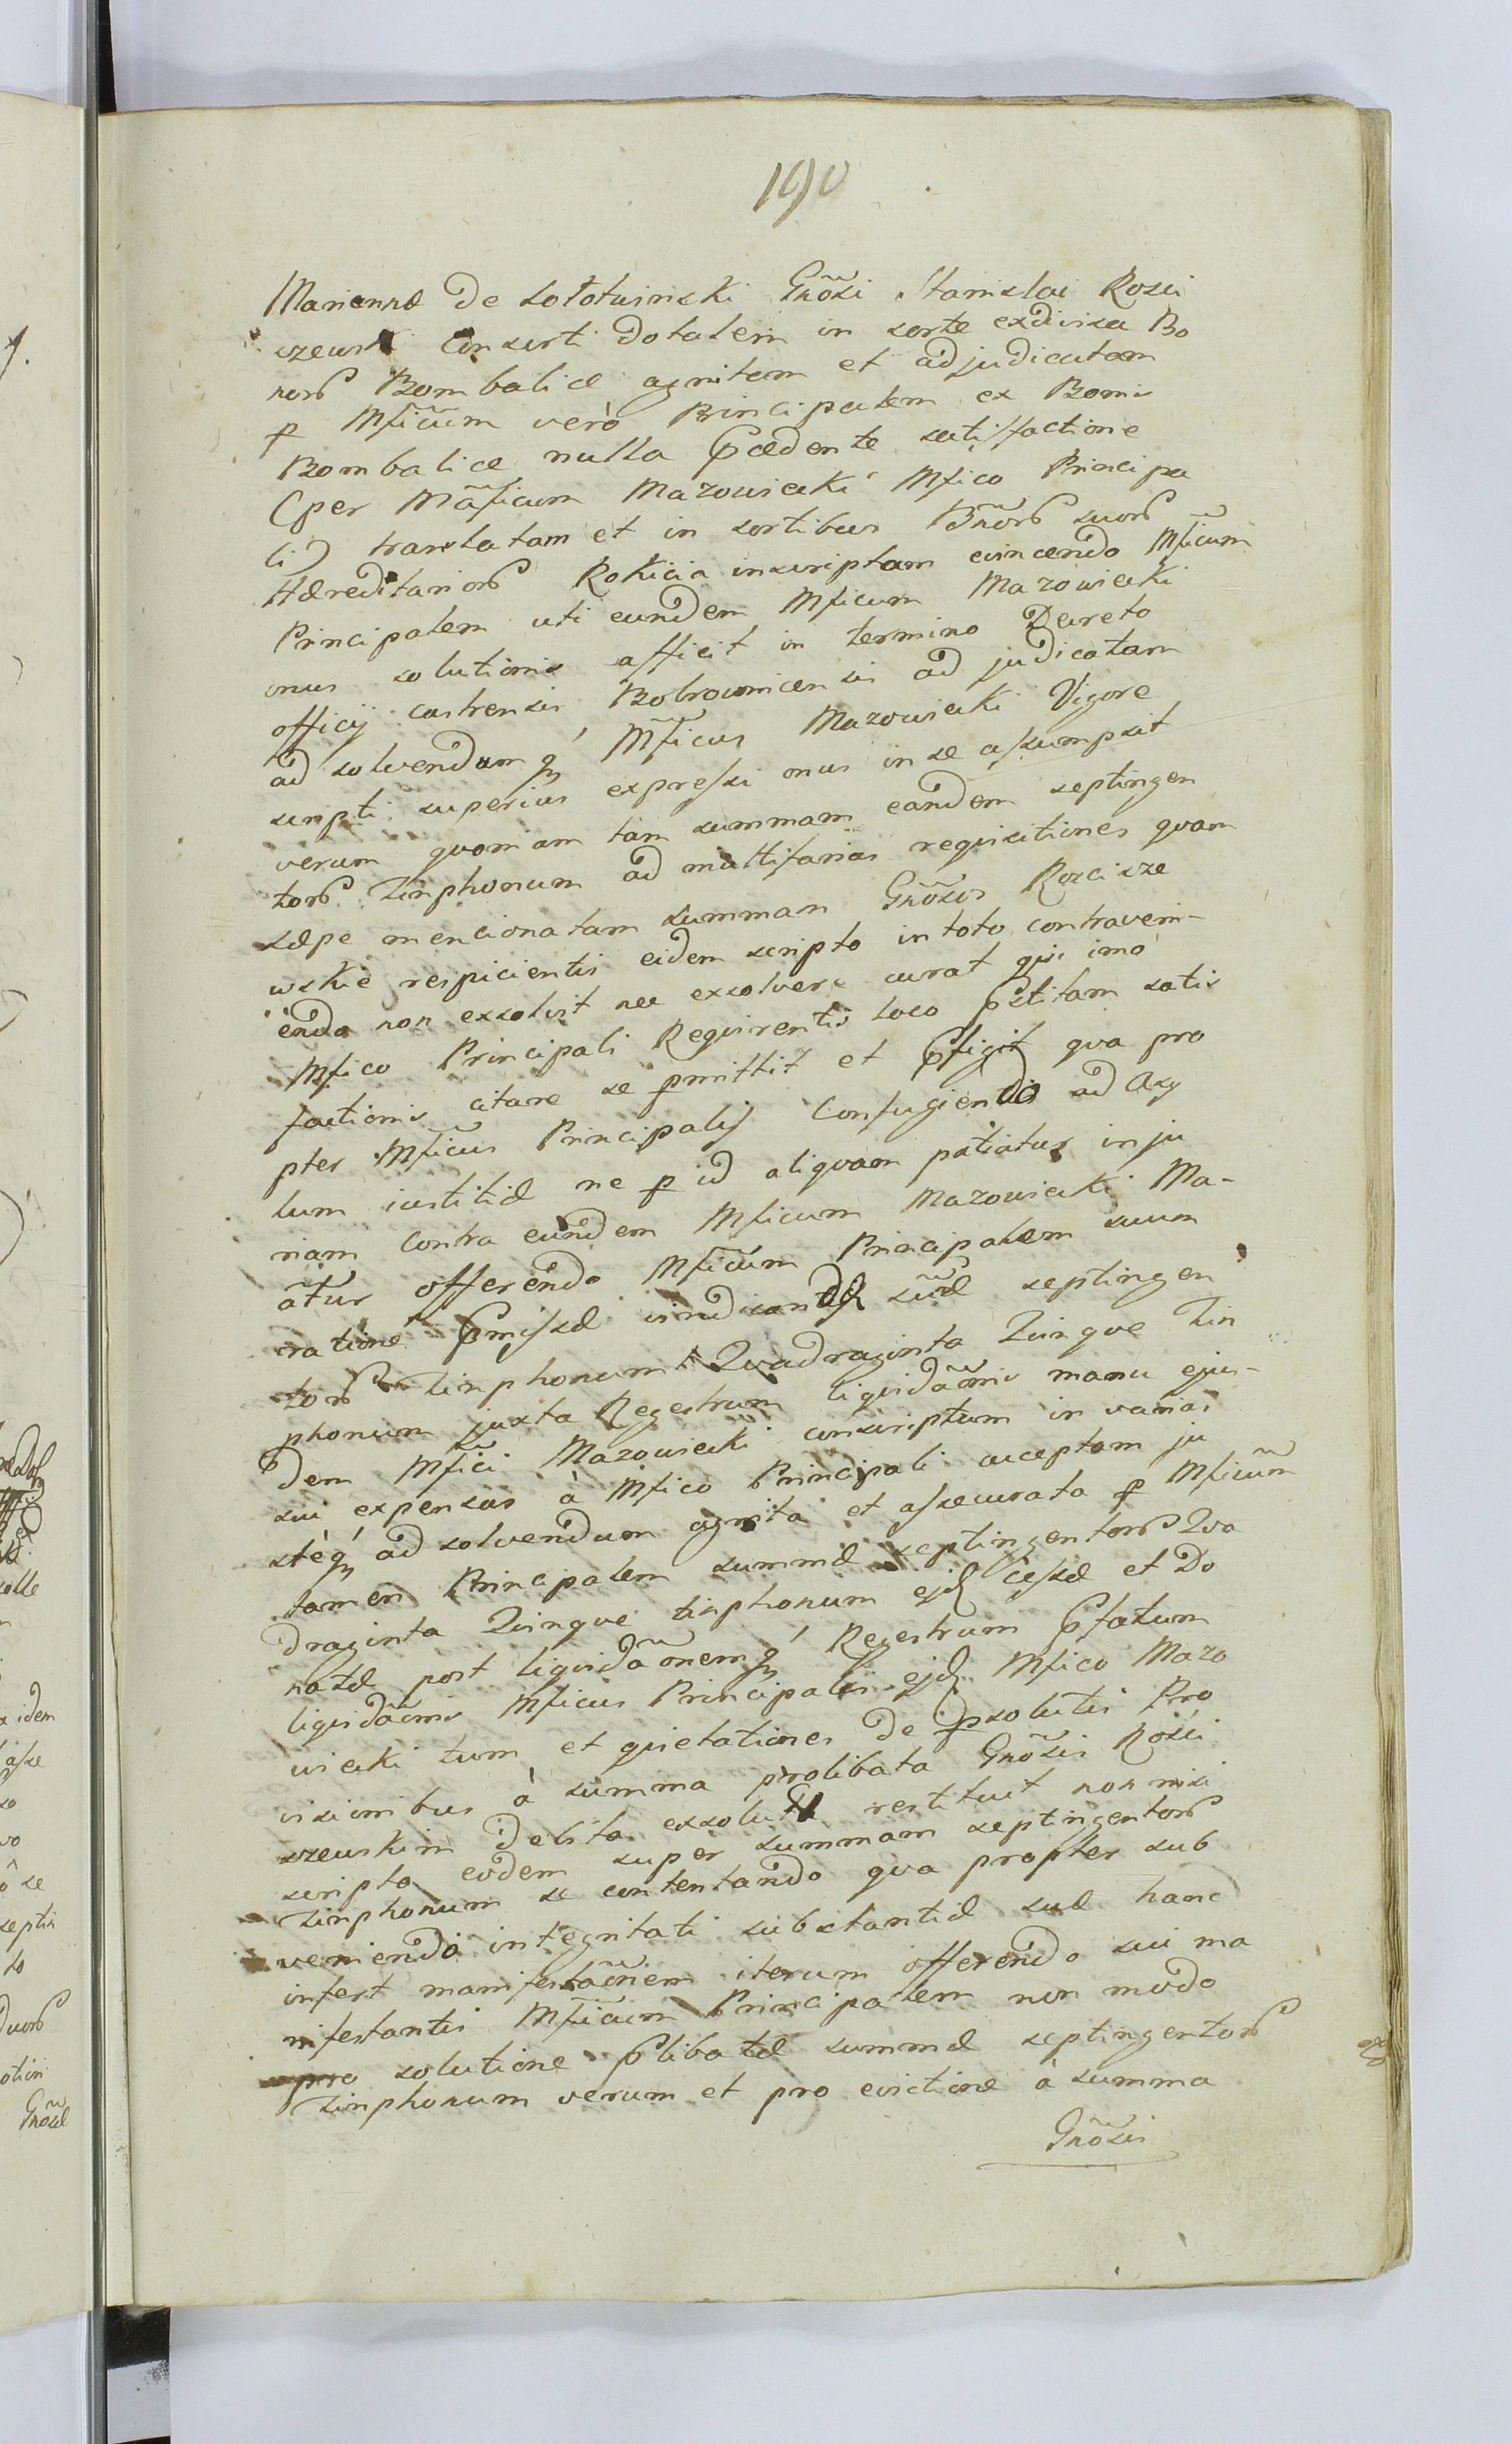 190
Mariannæ de Sołotwinski Gn̄osi Stanislai Rości
szewski Consorti dotalem in sorte exdivisa Bo
norꝭ Bombalice agnitam et adjudicatam
ꝑ Mficũm verò Principalem ex Bonis
Bombalice nulla ꝓcedente satisfactione
(per Mãficum Mazowiecki Mfico Principa
li) translatam et in sortibus Bñorꝭ suorꝭ
Hæreditariorꝭ Rokicia inscriptam evincendo Mficum
Principalem uti eundem Mficum Mazowiecki
onus solutionis afficit in termino Decreto
officij castrensis Bobrownicensis adjudicatam
ad solvendamq́ Mficus Mazowiecki Vigore
scripti superius expressi onus in se assumpsit
verum quoniam tam summam eandem septingen
torꝭ Tinphonum ad multifarias requisitiones quam
sæpe mencionatam summam Gñosos Rościsze
wskie respicientis eidem scripto in toto contraveni-
endo non exsolvit nec exsolvere curat qui imo
Mfico Principali Requirentis loco ꝓstitam satis
factionis citare se ꝓmittit et ꝓfigit qva pro
pter Mficus Principalis Confugiendo ad Asy
lum iustitiæ ne ꝑ id aliquam patiatur inju
riam Contra eundem Mficum Mazowiecki Ma-
ãtur offerendo Mficũm Principalem suum
ratione ꝓmissæ vindicandæ sũæ septingen
torꝭ Tinphonum Quadraginta Quinque Tin
phonum juxta Regestrum liquidãonis manu ejus-
dem Mfici Mazowiecki conscriptum in varias
sui expensas à Mfico Principali acceptam ju
stèq́ ad solvendum agnita et assecurata ꝑ Mficũm
tamen Principalem summæ septingentorꝭ Qva
draginta Quinque tinphonum ejd cessæ et Do
natæ post liquidãonemq́ Regestrum ꝓfatum
liquidãonis Mficus Principalis ejd Mfico Mazo
wiecki tum et quietationes de ꝑsolutis Pro
visionibus à summa prolibata Gñosis Rości
szewskim debita exsolutis restituit non nisi
scripto eodem super summam septingentorꝭ
Tinphonum se contentando qva propter sub
veniendo integritati substantiæ suæ hanc
infert manifestãonem iterum offerendo sui ma
nifestantis Mficum Principalem non modo
pro solutione ꝓlibatæ summæ septingentorꝭ
Tinphonum verum et pro evictione à summa
Gñosis